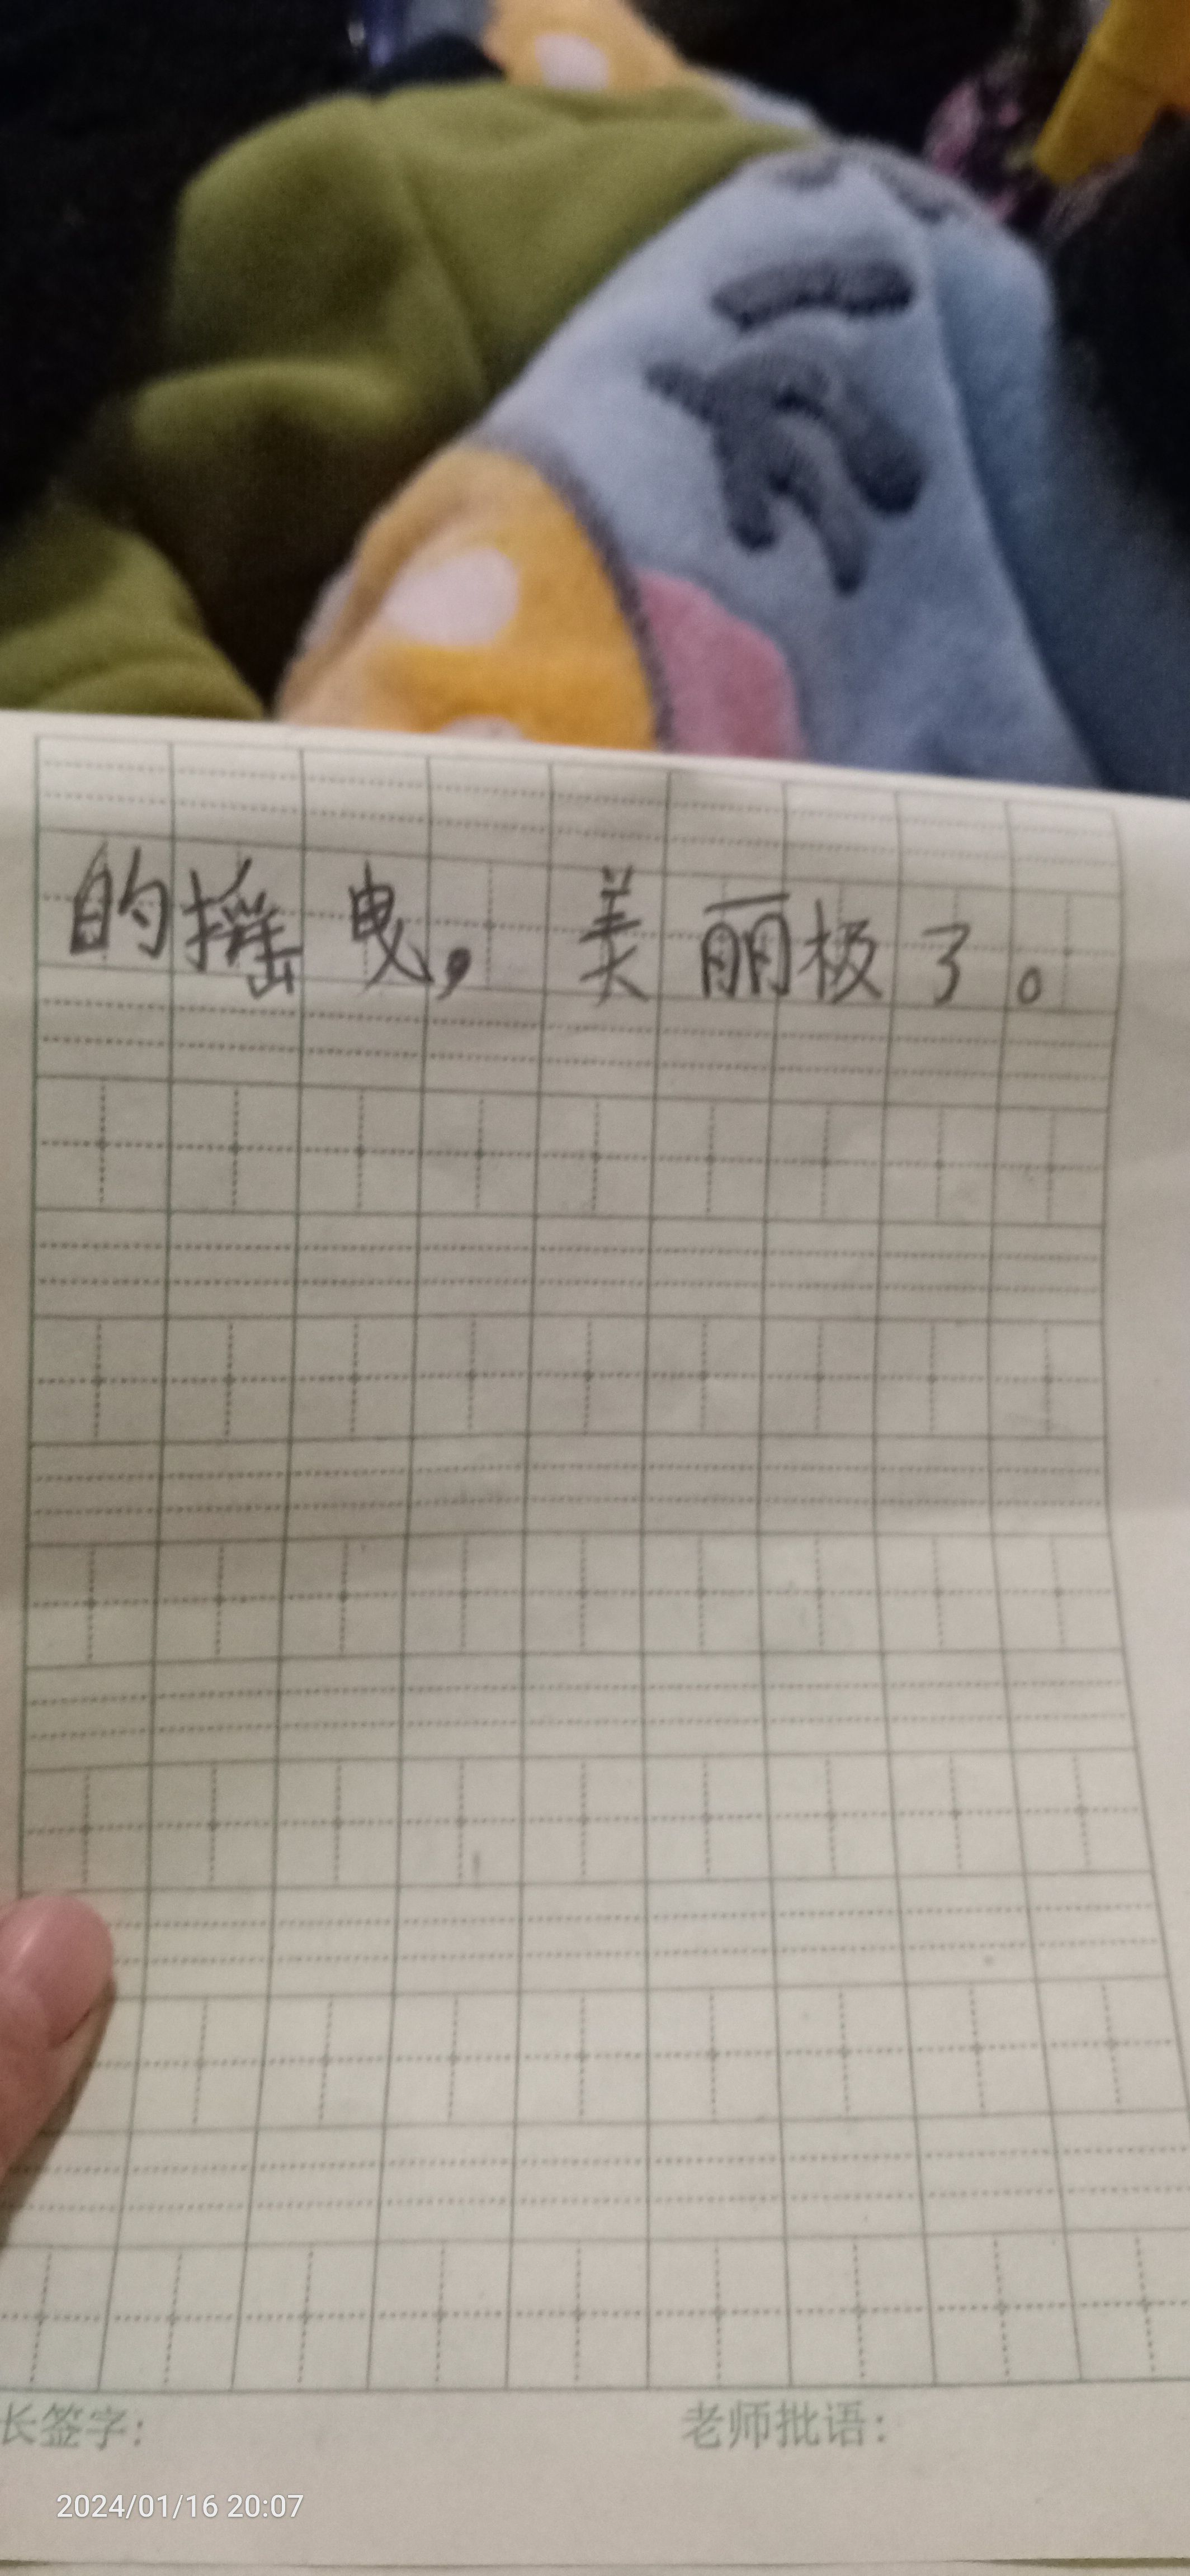 的摇曳，美丽极了。
长签字：
老师批语：
2024/01/16 20:07